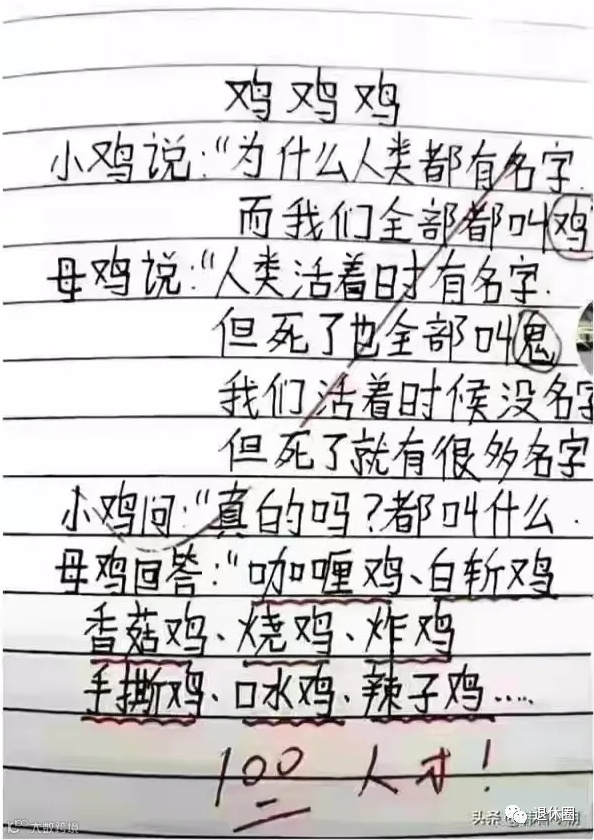 鸡鸡鸡
小鸡说:“为什么人类都有名字.
而我们全部都叫鸡
母鸡说:“人类活着时有名字.
但死了也全部叫鬼
我们活着时候没名字
但死了就有很多名字
小鸡问:“真的吗?都叫什么.
母鸡回答:“咖喱鸡、白斩鸡
香菇鸡、烧鸡、炸鸡
手撕鸡、口水鸡、辣子鸡.....
100 人才!
大数跨境
头条
退休圈